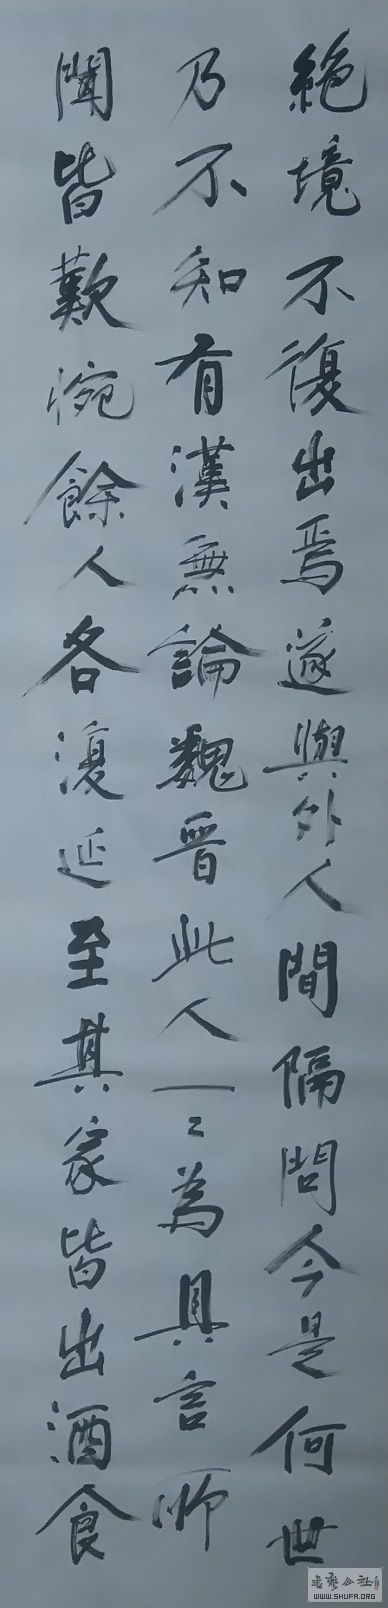 絕境不復出焉遂與外人間隔問今是何世
乃不知有漢無論魏晉此人一〻為具言所
聞皆歎惋餘人各復延至其家皆出酒食
書藝公社
WWW.SHUFA.ORG